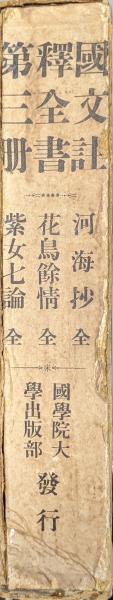 國文註
釋全書
第三册
河海抄 全
花鳥餘情 全
紫女七論 全
國學院大
學出版部
發行